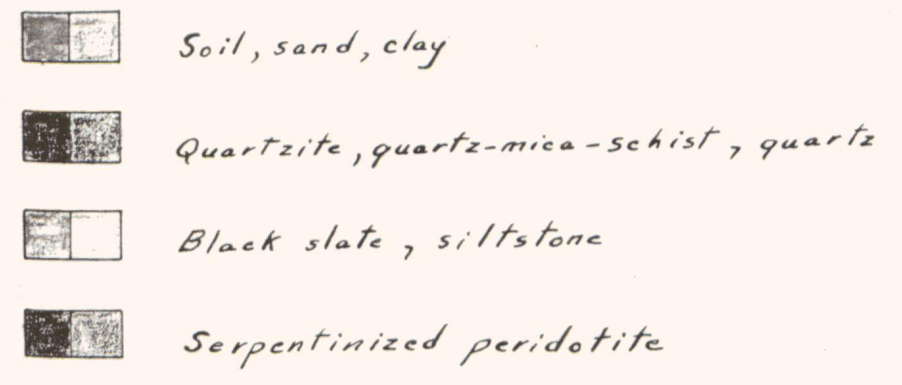 Soil, sand, clay
Quartzite, quartz-mica-schist, quartz
Black slate, siltstone
Serpentinized peridotite